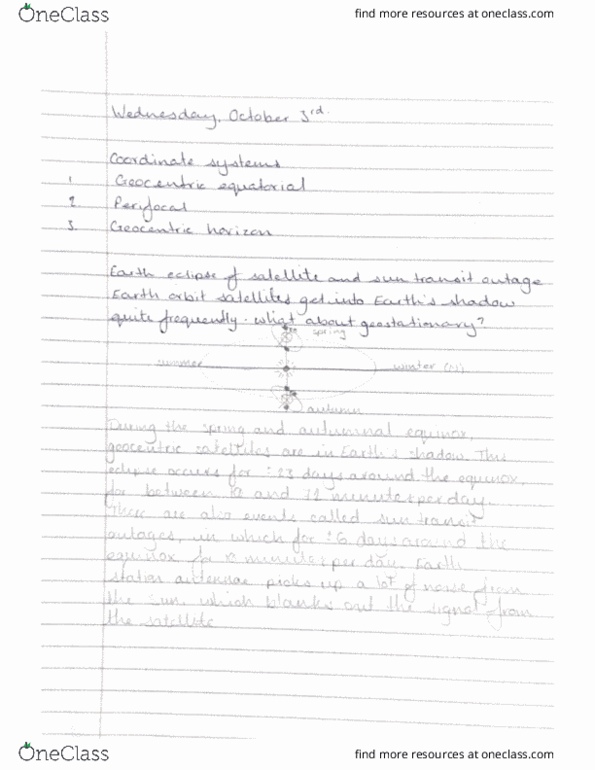 OneClass
find more resources at oneclass.com
Wednesday, October 3rd.
Coordinate systems
1. Geocentric equatorial
2. Perifocal
3. Geocentric horizon
Earth eclipse of satellite and sun transit outage
Earth orbit satellites get into Earth's shadow
quite frequently. what about geostationary?
spring
summer
winter (N)
autumn
During the spring and autumnal equinox,
geocentric satellites are in Earth's shadow. This
eclipse occurs for ±23 days around the equinox,
for between and 72 minutes per day.
There are also events called sun transit
outages, in which for ±6 days around the
equinox for minutes per day. Earth
station antennae picks up a lot of noise from
the sun, which blanks out the signal from
the satellite
OneClass
find more resources at oneclass.com